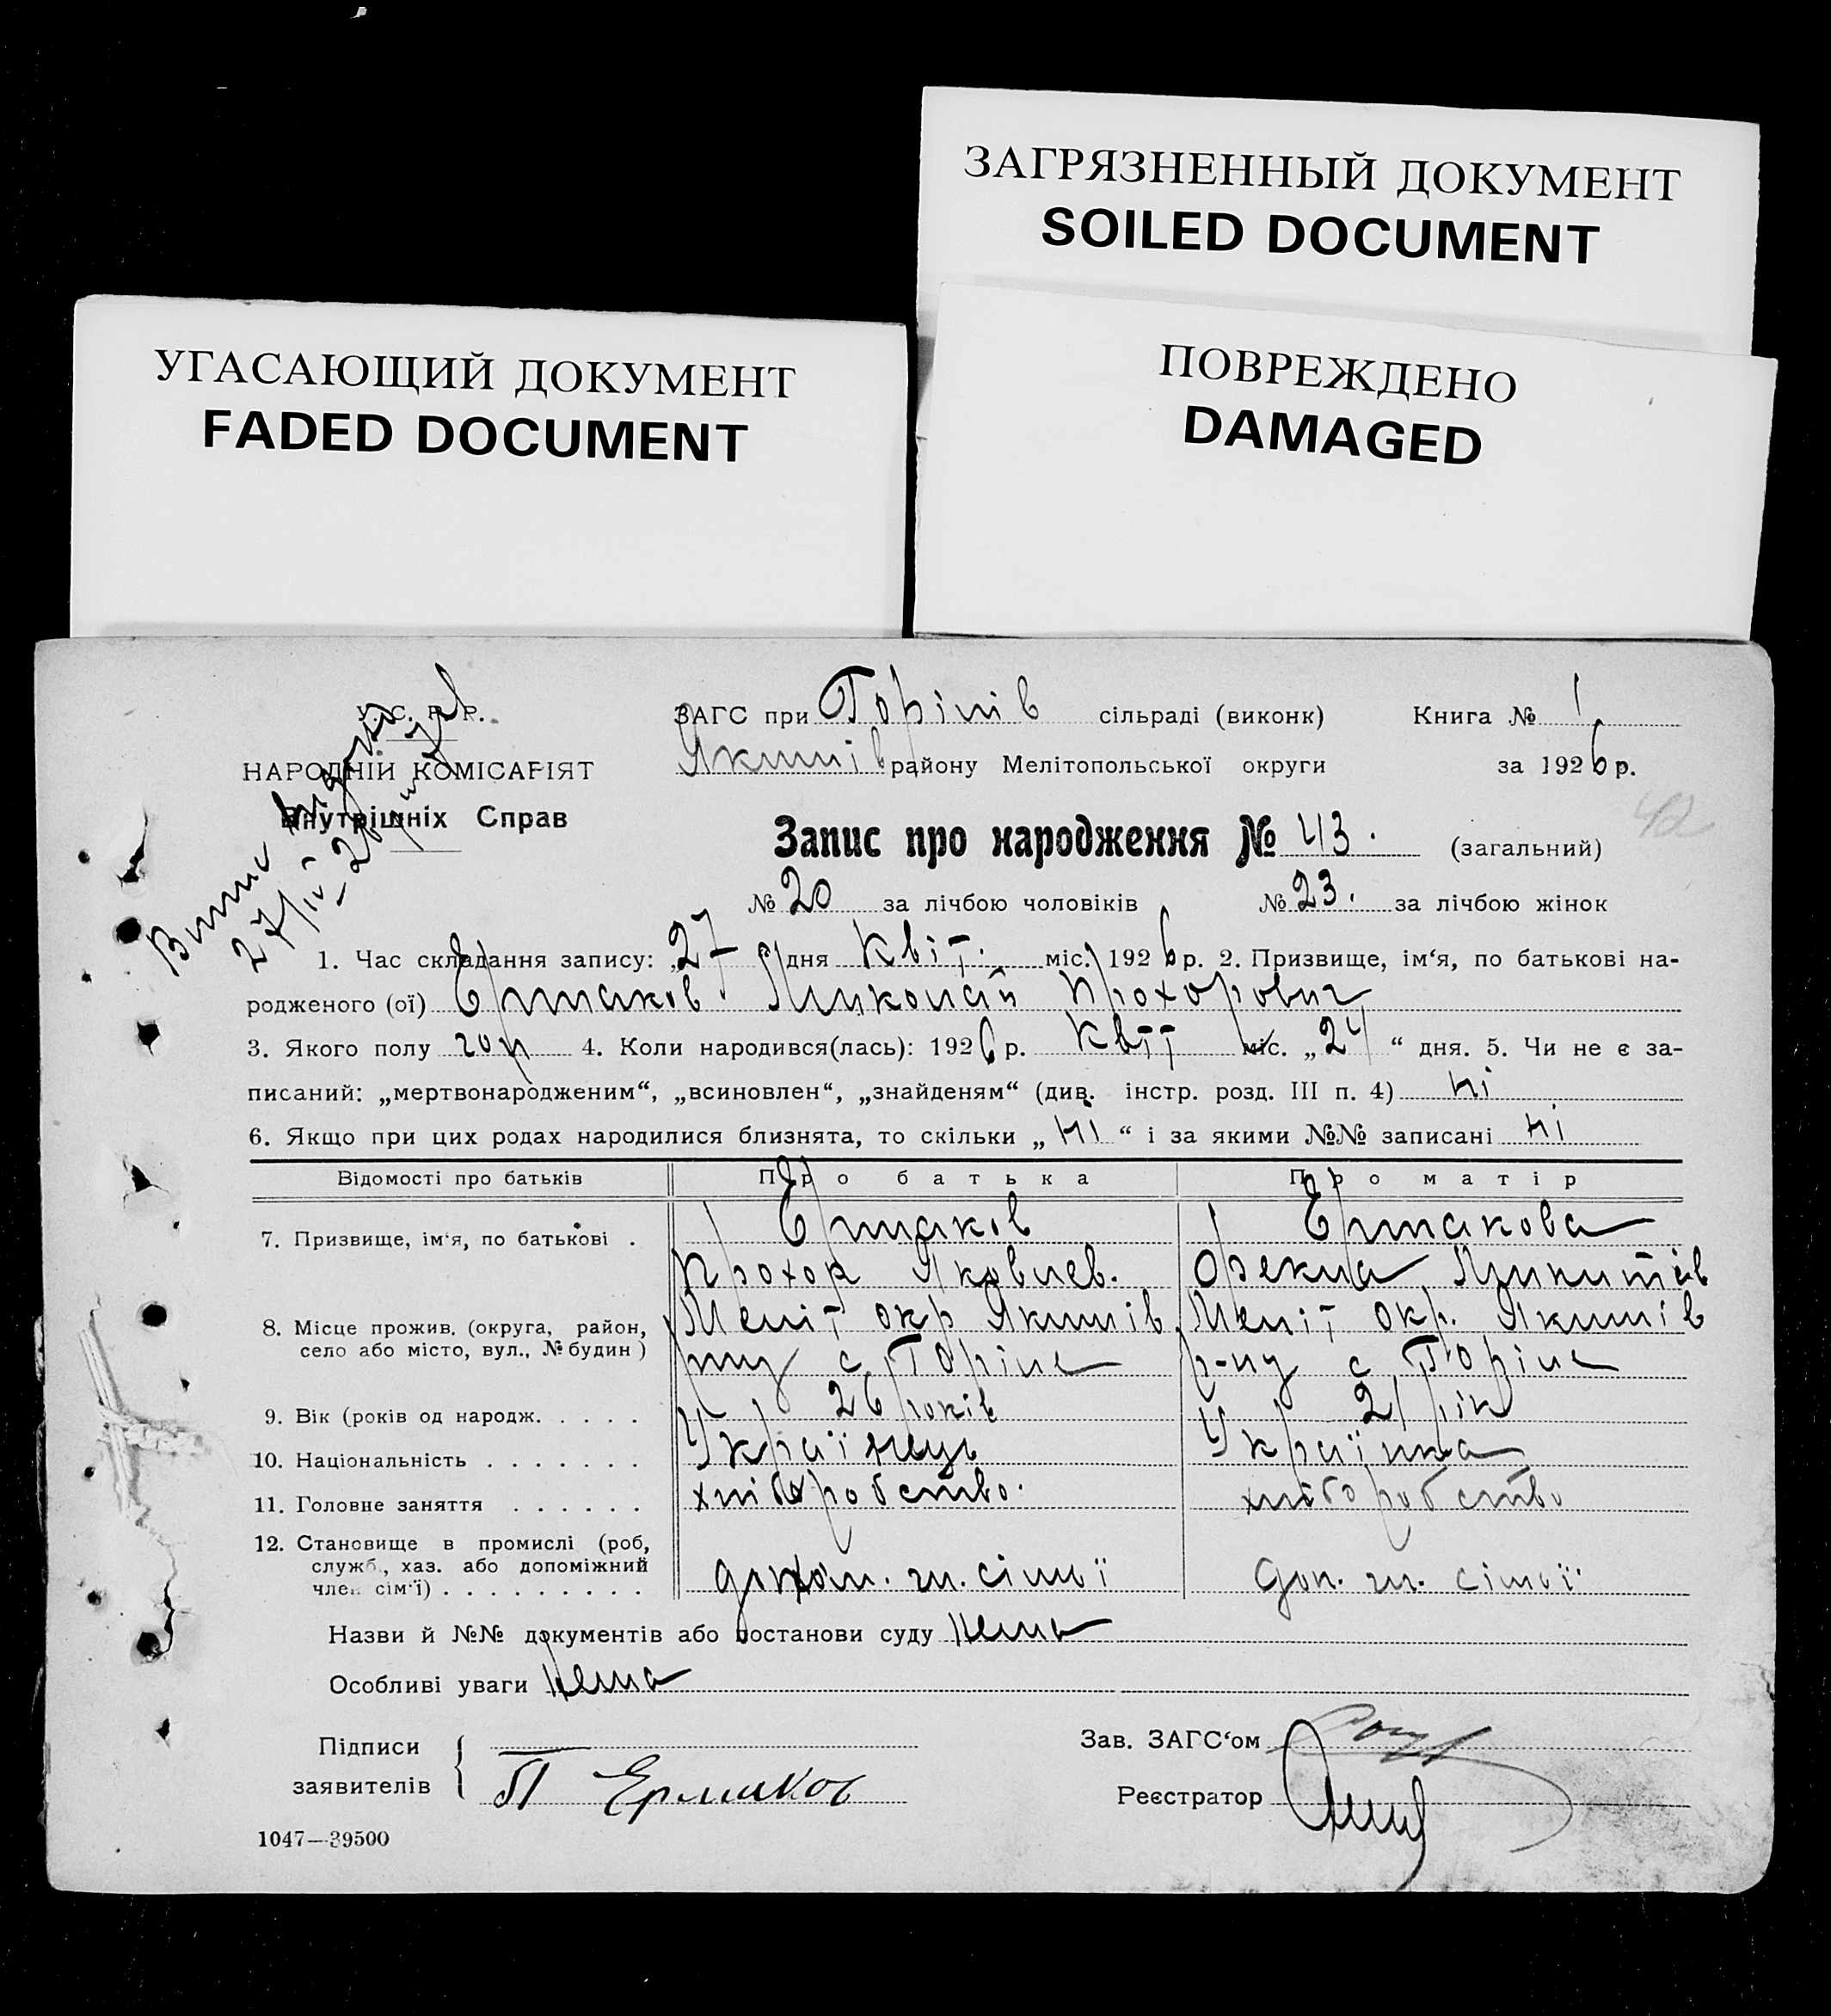 ЗАГРЯЗНЕННЫЙ ДОКУМЕНТ
SOILED DOCUMENT
УГАСАЮЩИЙ ДОКУМЕНТ
FADED DOCUMENT
ПОВРЕЖДЕНО
DAMAGED
У. С. Р. Р.
НАРОДНІЙ КОМІСАРІЯТ
Внутрішніх Справ
27/IV-26
ЗАГС при Горілів сільраді (виконк) Книга № 1
Якимів району Мелітопольської округи за 1926 р.
42
Запис про народження № 43. (загальний)
№ 20 за лічбою чоловіків № 23. за лічбою жінок
1. Час складання запису: „27“ дня Квіт. міс. 1926 р. 2. Призвище, ім‘я, по батькові на-
родженого (ої) Ермаков Миколай Прохорович
3. Якого полу чол 4. Коли народився(лась): 1926 р. Квіт міс. „24“ дня. 5. Чи не є за-
писаний: „мертвонародженим“, „всиновлен“, „знайденям“ (див. інстр. розд. III п. 4) Ні
6. Якщо при цих родах народилися близнята, то скільки „Ні“ і за якими №№ записані Ні
Відомості про батьків Про батька Про матір
7. Призвище, ім‘я, по батькові . Ермаков Ермакова
Прохор Яковлев. Микитів
8. Місце прожив. (округа, район, Меліт окр Якимів Меліт окр. Якимів
село або місто, вул., № будин ) рну с Горіле р-ну с Горіле
9. Вік (років од народж. . . . . 26 років 21 рік
10. Національність . . . . . . . Українець Українка
11. Головне заняття . . . . . . хліборобство. хліборобство
12. Становище в промислі (роб,
служб., хаз. або допоміжний
член сім‘ї) . . . . . . . . . чл. сімьї доп. чл. сімьї
Назви й №№ документів або постанови суду Нема
Особливі уваги Нема
Підписи
заявителів П Ермаков
Зав. ЗАГС‘ом
Реєстратор
1047—39500